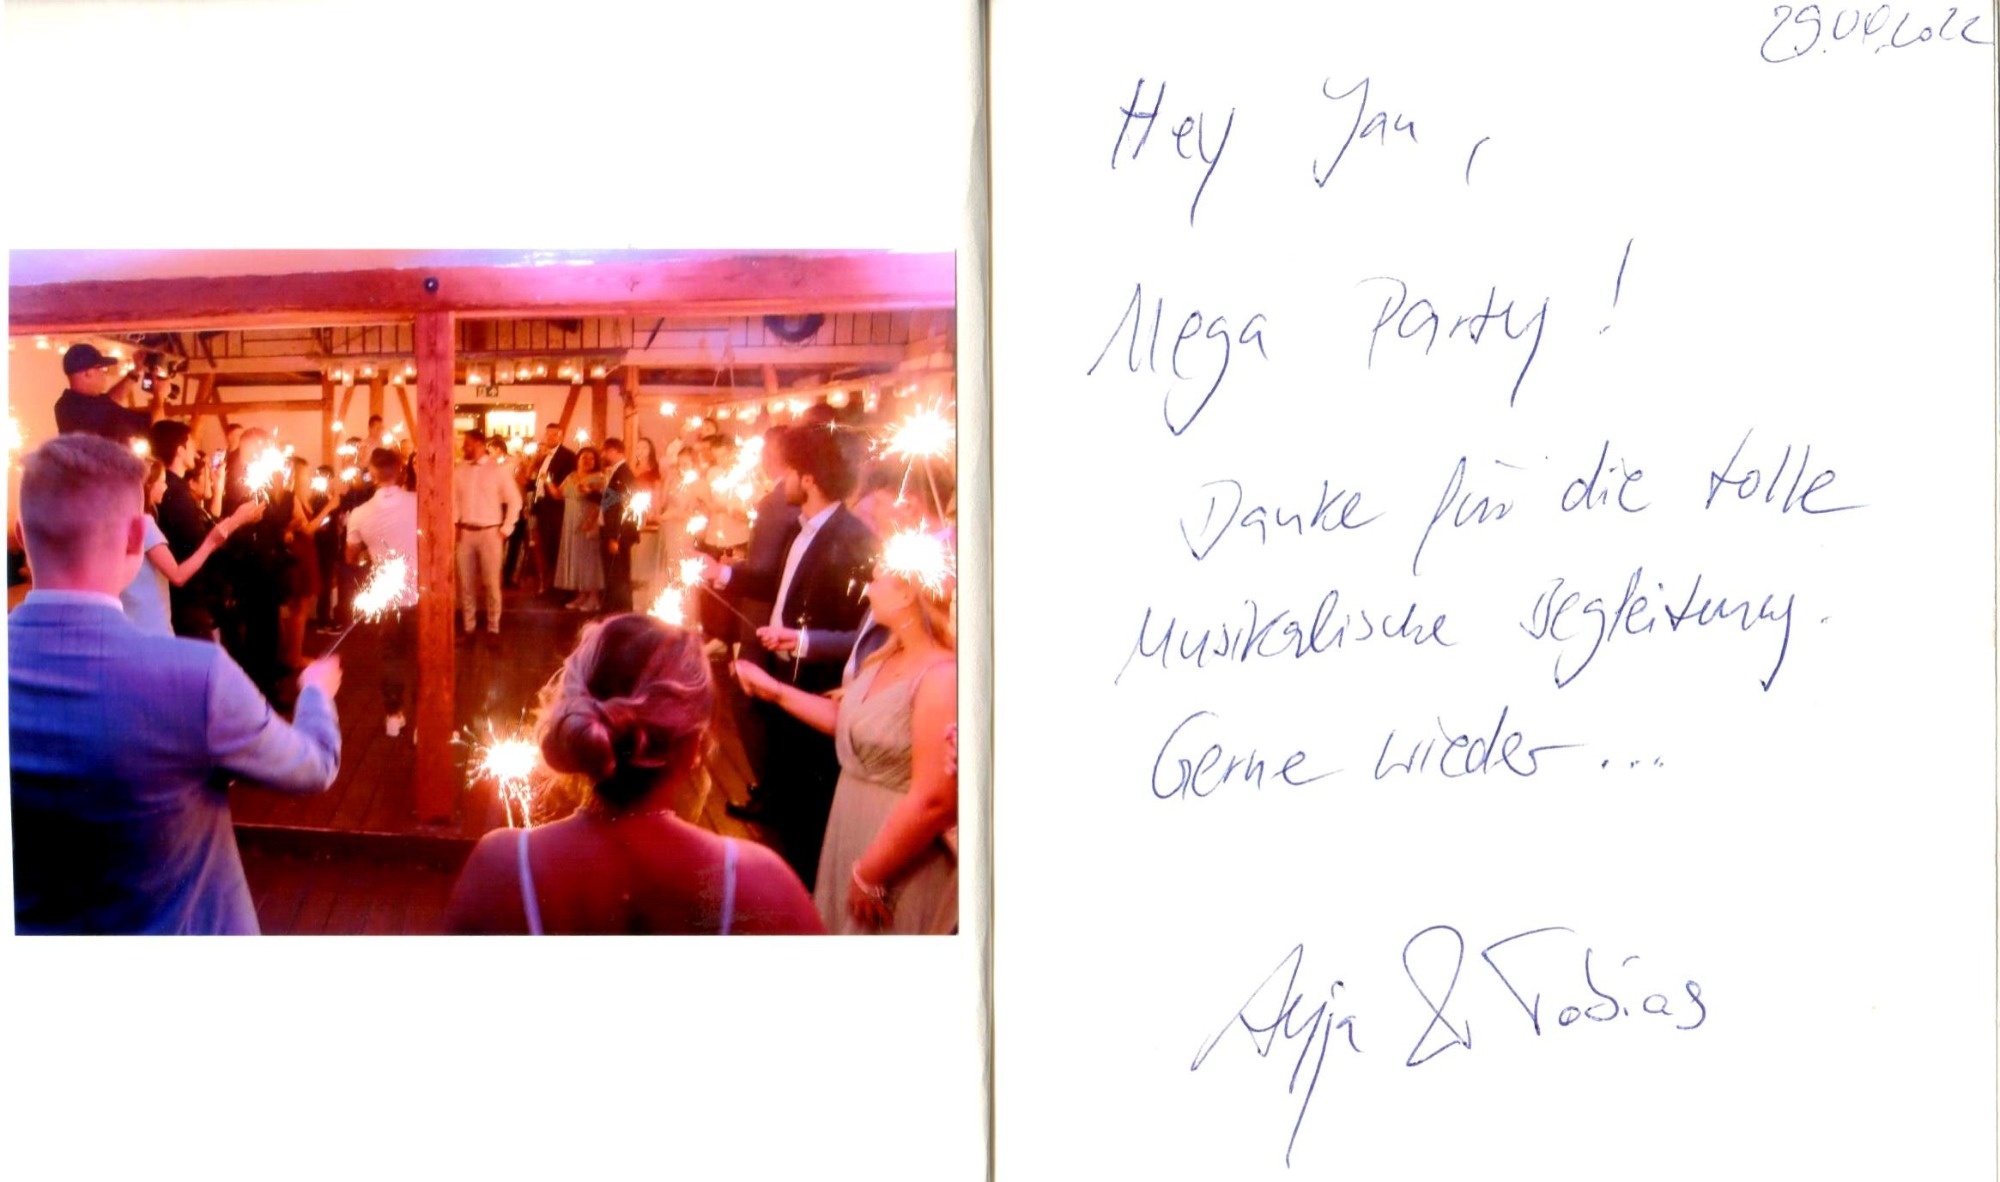 Hey Jan,
Mega Party!
Danke für die tolle
Musikalische Begleitung.
Gerne wieder...
& Tobias